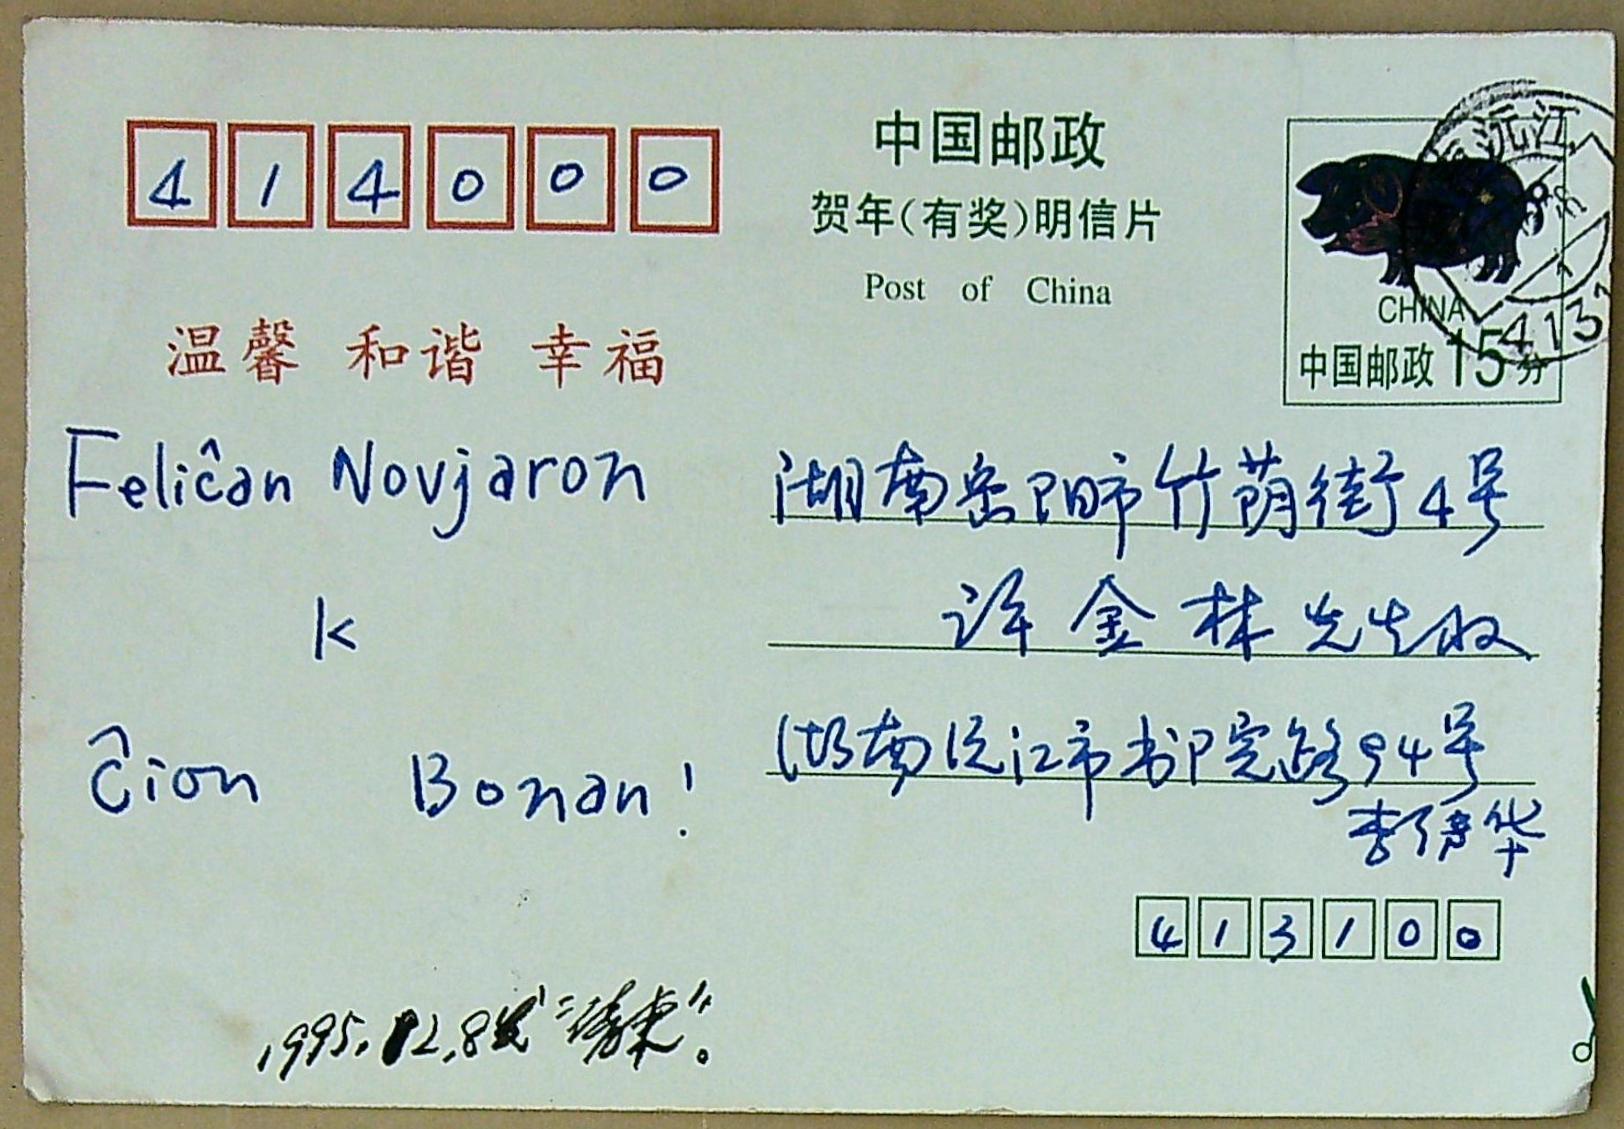 414000
中国邮政
贺年(有奖)明信片
Post of China
沅江
CHINA
中国邮政 15分
温馨 和谐 幸福
Feliĉan Novjaron
k
Ĉion Bonan!
湖南岳阳市竹荫街4号
许金林先生收
湖南沅江市书院路94号
李 华
413100
1995.12.8